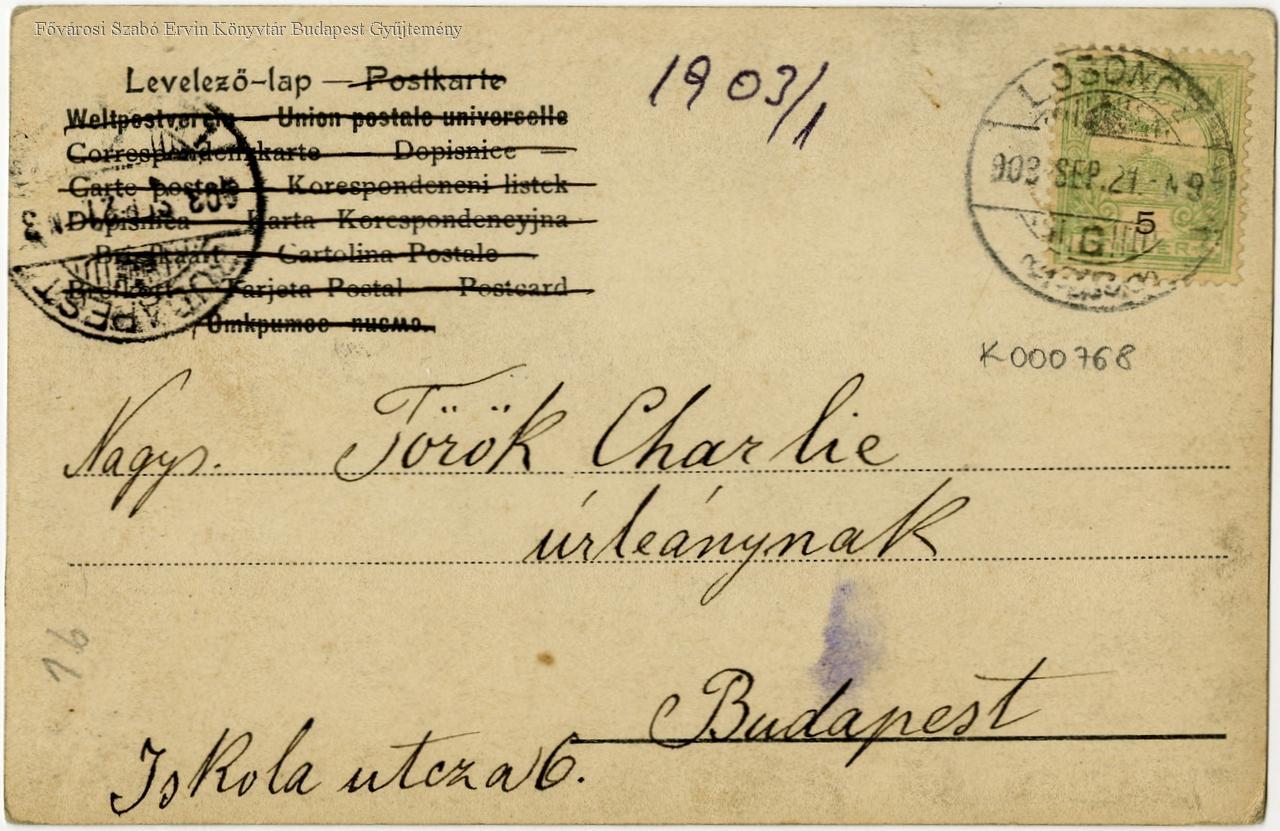 Fővárosi Szabó Ervin Könyvtár Budapest Gyűjtemény
1903/1
Levelező-lap — Postkarte
Weltpostverein — Union postale universelle
Correspondenzkarte Dopisnice —
Carte postale — Korespondencni listek
Dopisnica — Karta Korespondencyjna
Briefkaart — Cartolina Postale
Brefkort — Tarjeta Postal — Postcard
Открытое письмо.
LOSONCZ
903 SEP. 21 - N 9
G
5
903 SEP 21 N 3
BUDAPEST
K000768
Nagys. Török Charlie
úrleánynak
16
Budapest
Iskola utcza 6.